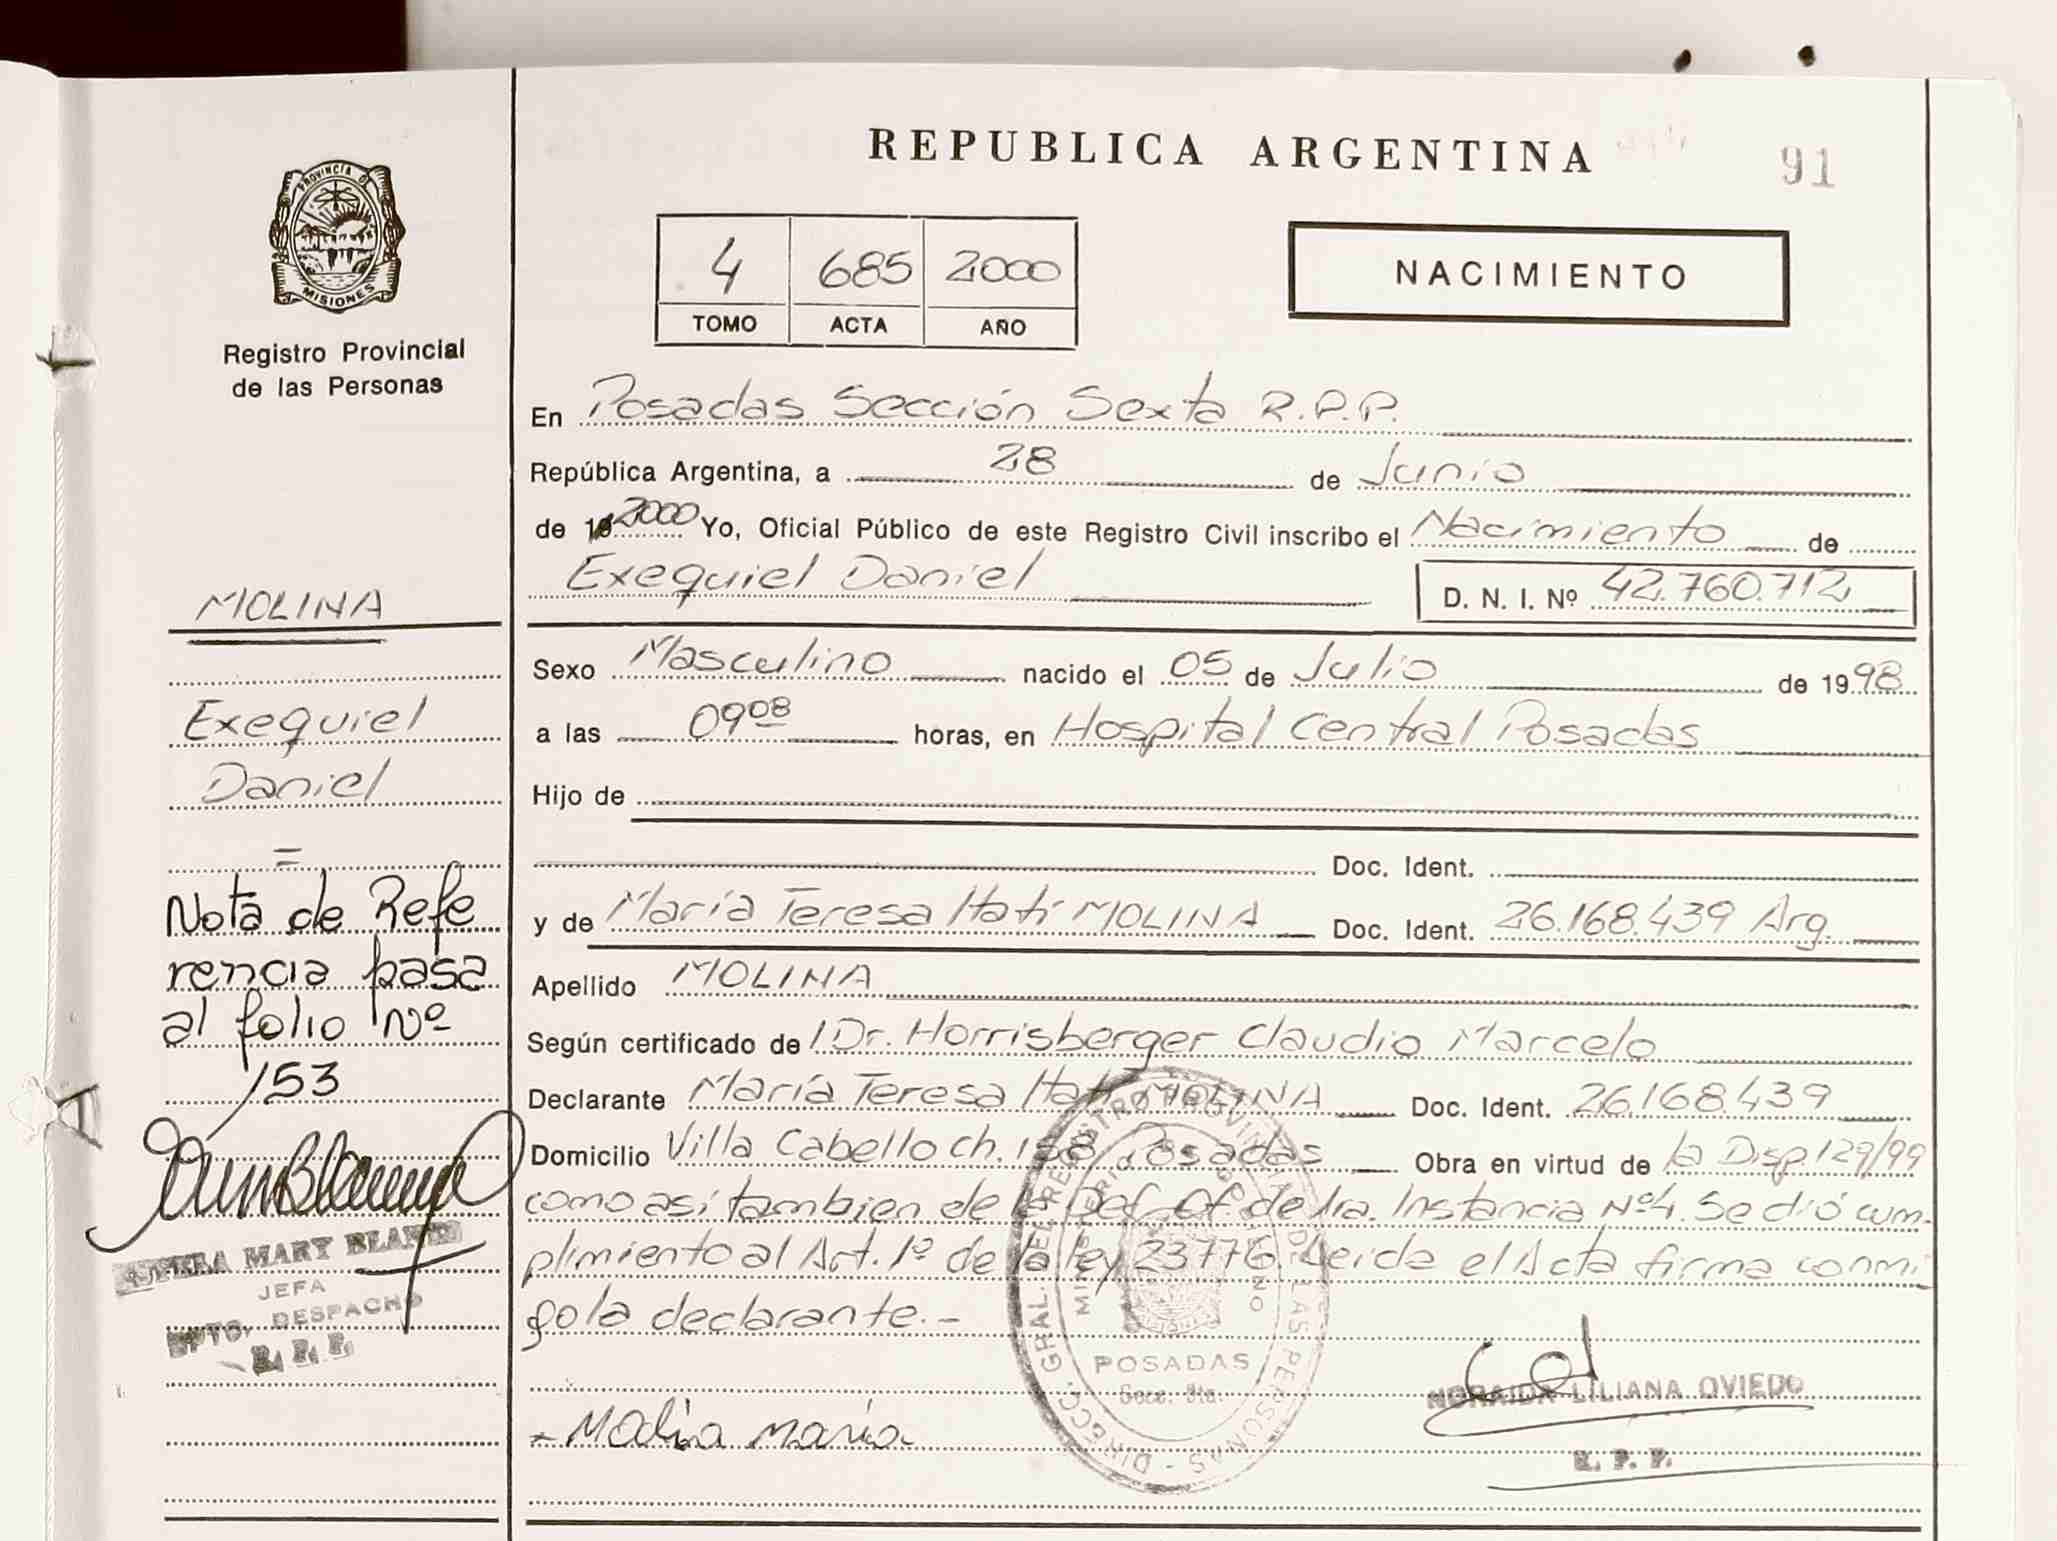 REPUBLICA ARGENTINA
91
PROVINCIA DE
MISIONES
Registro Provincial
de las Personas
4 685 2000
TOMO ACTA AÑO
NACIMIENTO
En Posadas Sección Sexta R.P.P.
República Argentina, a 28 de Junio
de 19 2000 Yo, Oficial Público de este Registro Civil inscribo el Nacimiento de
Exequiel Daniel D. N. I. Nº 42.760.712
Sexo Masculino nacido el 05 de Julio de 1998
a las 09 08 horas, en Hospital Central Posadas
Hijo de
Doc. Ident.
y de María Teresa Itatí MOLINA Doc. Ident. 26.168.439 Arg.
Apellido MOLINA
Según certificado de Dr. Horrisberger Claudio Marcelo
Declarante María Teresa Itatí MOLINA Doc. Ident. 26.168.439
Domicilio Villa Cabello ch. 158 Posadas Obra en virtud de la Disp. 129/99
como así tambien de la Def. Of. de 1ra. Instancia Nº4. Se dió cum-
plimiento al Art. 1º de la ley 23776. Leida el Acta firma conmi
go la declarante.-
MOLINA
Exequiel
Daniel
=
Nota de Refe
rencia pasa
al folio Nº
153
MARY
JEFA
DPTO. DESPACHO
R. P. P.
DIRECC. GRAL. DEL REGISTRO PROVINCIAL DE LAS PERSONAS
POSADAS
Secc. 6ta.
Molina María
NORAIDA LILIANA OVIEDO
R. P. P.